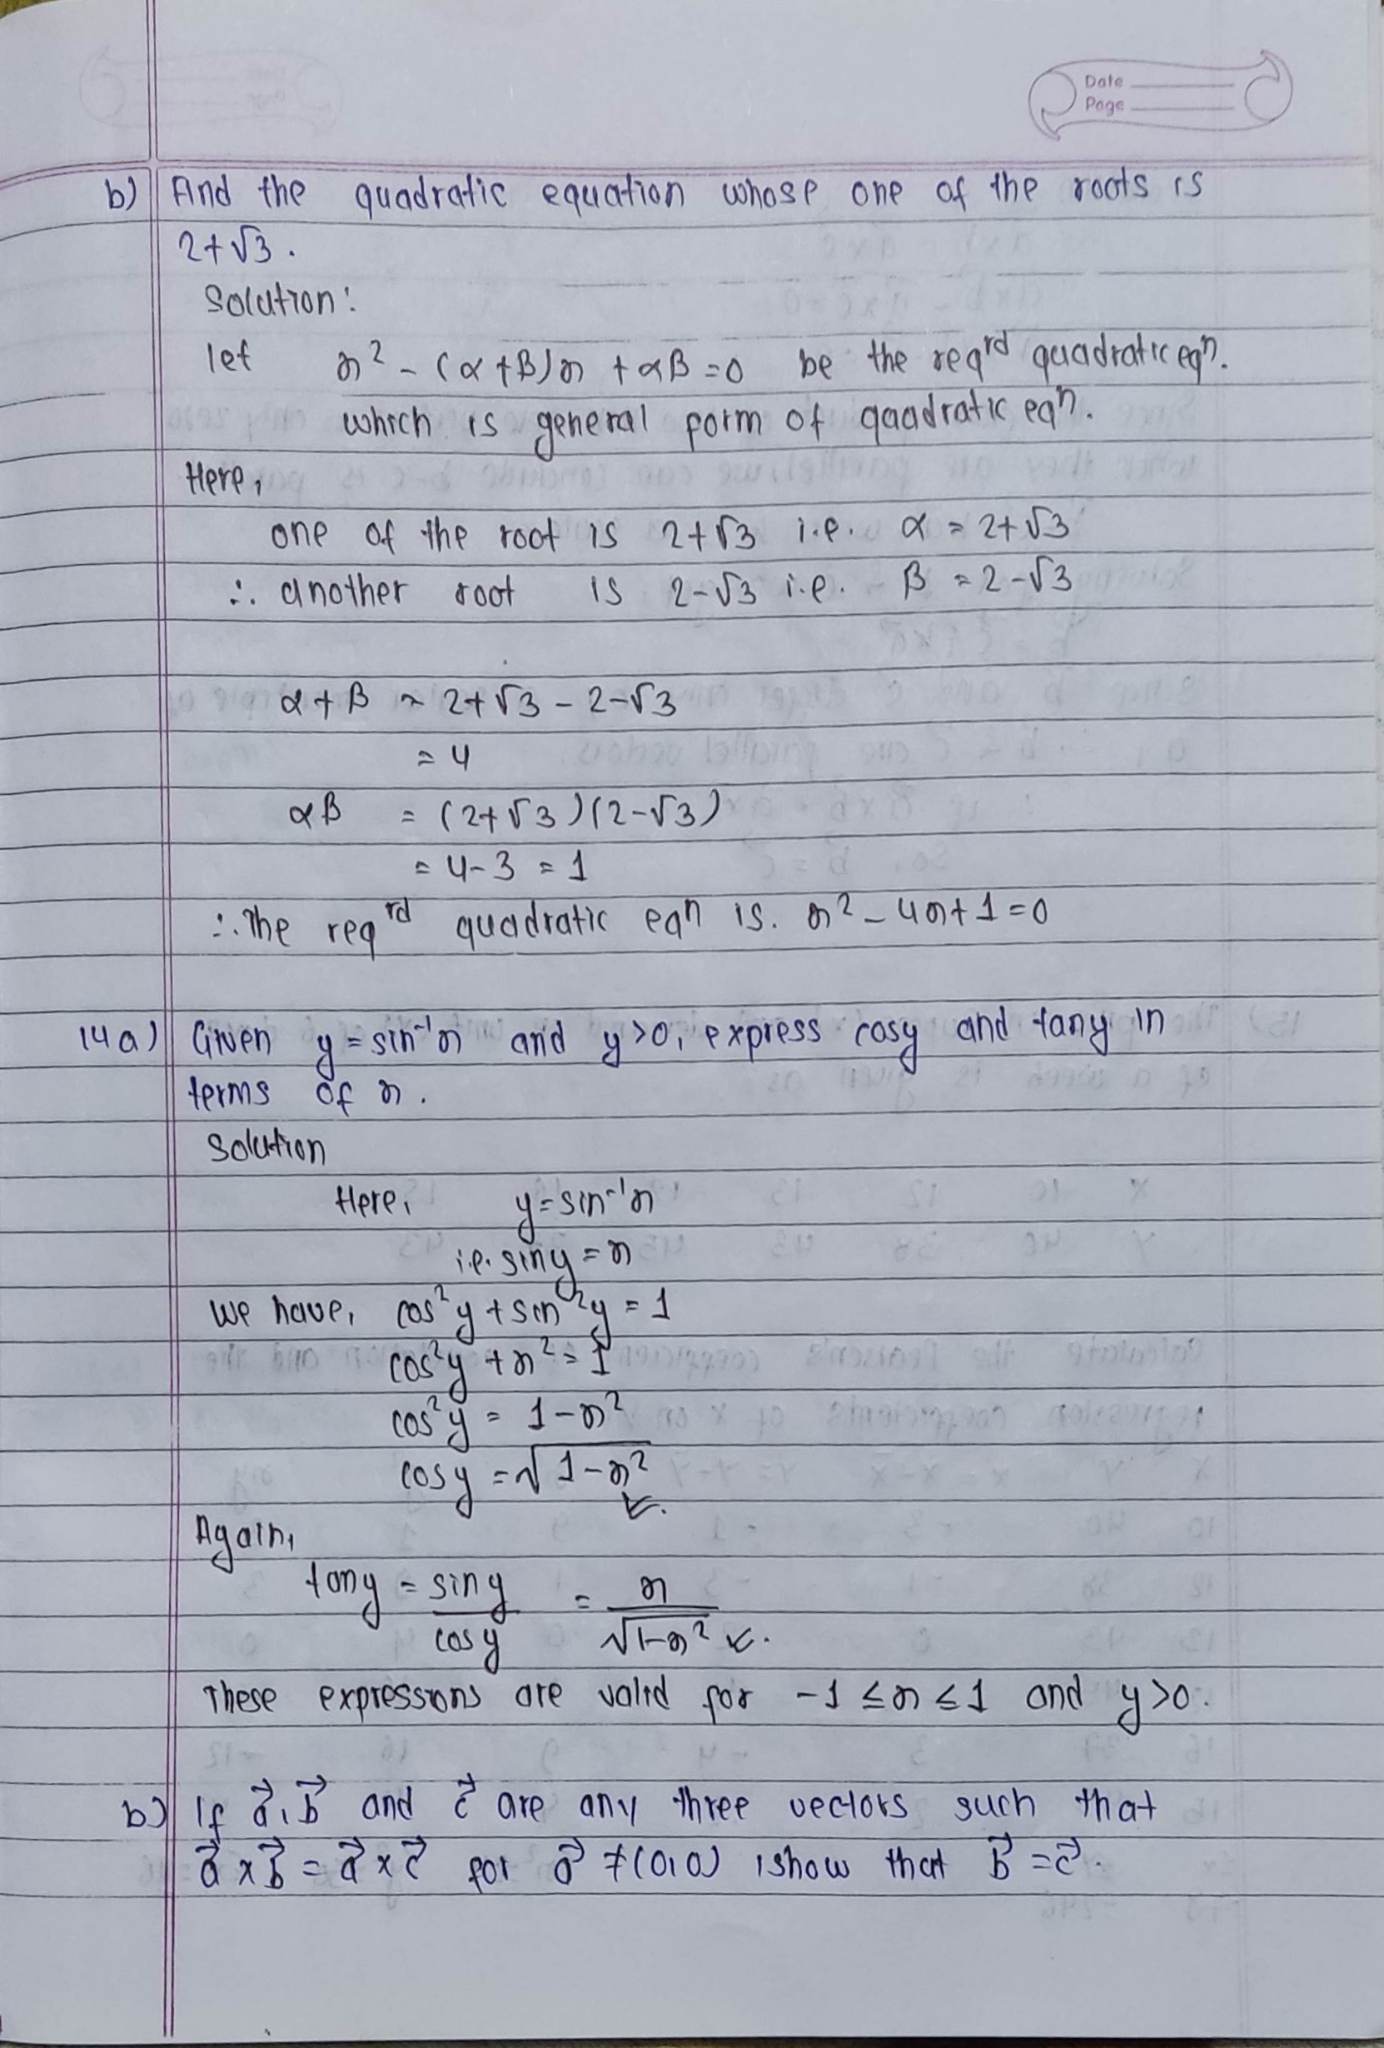 Date
Page
b) Find the quadratic equation whose one of the roots is
2+√3.
Solution:
let x² - (α+β)x + αβ = 0 be the reqrd quadratic eqn.
which is general form of quadratic eqn.
Here,
one of the root is 2+√3 i.e. α = 2+√3
∴ another root is 2-√3 i.e. β = 2-√3
α+β = 2+√3 - 2-√3
= 4
αβ = (2+√3)(2-√3)
= 4-3 = 1
∴ The reqrd quadratic eqn is. x² - 4x + 1 = 0
14 a) Given y = sin⁻¹x and y>0, express cosy and tany in
terms of x.
Solution
Here, y = sin⁻¹x
i.e. siny = x
We have, cos²y + sin²y = 1
cos²y + x² = 1
cos²y = 1-x²
cosy = √1-x²
Again,
tany = siny/cosy = x/√1-x²
These expressions are valid for -1 ≤ x ≤ 1 and y>0.
b) If a⃗, b⃗ and c⃗ are any three vectors such that
a⃗ × b⃗ = a⃗ × c⃗ for a⃗ ≠ (0,0) , show that b⃗ = c⃗.